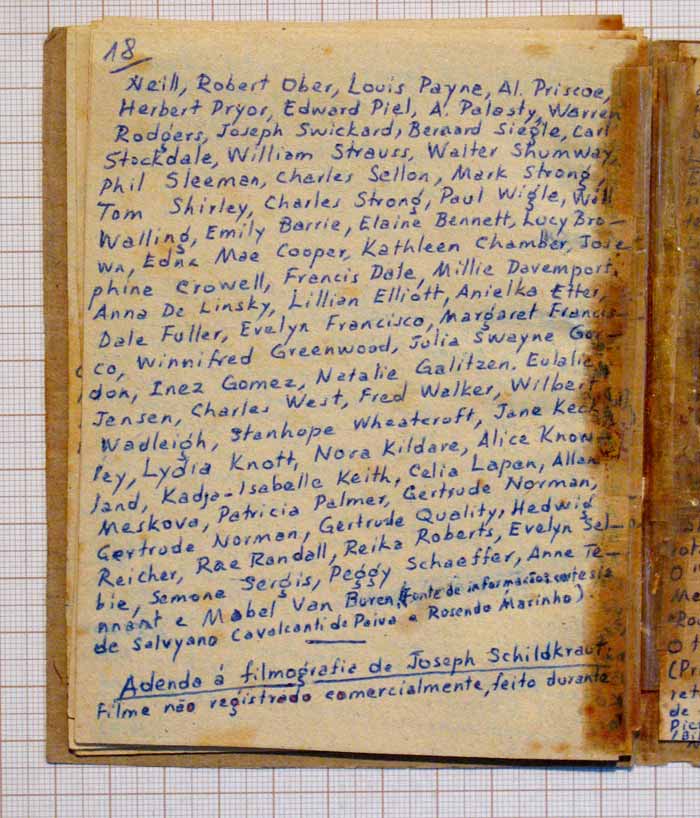 18
Neill, Robert Ober, Louis Payne, Al. Priscoe,
Herbert Pryor, Edward Piel, A. Palasty, Warren
Rodgers, Joseph Swickard, Bernard Siegle, Carl
Stockdale, William Strauss, Walter Shumway,
Phil Sleeman, Charles Sellon, Mark Strong,
Tom Shirley, Charles Strong, Paul Wigle, Will
Walling, Emily Barrie, Elaine Bennett, Lucy Bro-
wn, Edna Mae Cooper, Kathleen Chamber, Jose
phine Crowell, Francis Dale, Millie Davemport,
Anna De Linsky, Lillian Elliott, Anielka Etter,
Dale Fuller, Evelyn Francisco, Margaret Francis-
co, Winnifred Greenwood, Julia Swayne Gor-
don, Inez Gomez, Natalie Galitzen. Eulalie
Jensen, Charles West, Fred Walker, Wilbert
Wadleigh, Stanhope Wheatcroft, Jane Keck
ley, Lydia Knott, Nora Kildare, Alice Know-
land, Kadja-Isabelle Keith, Celia Lapan, Allan
Meskova, Patricia Palmer, Gertrude Norman,
Gertrude Norman, Gertrude Quality, Hedwig
Reicher, Rae Randall, Reika Roberts, Evelyn Sel-
bie, Semone Sergis, Peggy Schaeffer, Anne Te-
nnant e Mabel Van Buren. (Fonte de informação: cortesia
de Salvyano Cavalcanti de Paiva e Rosendo Marinho).
Adenda á filmografia de Joseph Schildkraut:
Filme não registrado comercialmente, feito durante
O
Me
O t
(Pr
ret
de
Pic